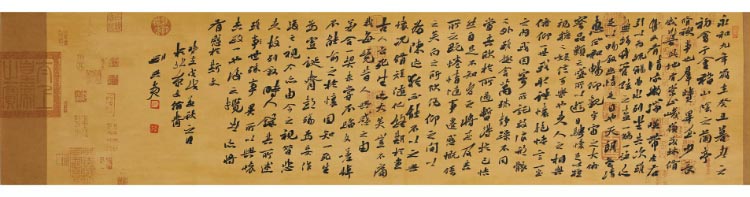 永和九年歲在癸丑暮春之
初會于會稽山陰之蘭亭
脩禊事也群賢畢至少長
咸集此地有崇山峻嶺茂林脩竹
又有清流激湍映帶左右
引以為流觴曲水列坐其次雖
無絲竹管弦之盛一觴一詠亦
足以暢敘幽情是日也天朗氣清
惠風和暢仰觀宇宙之大俯
察品類之盛所以遊目騁懷足以極
視聽之娛信可樂也夫人之相與
俯仰一世或取諸懷抱悟言一室
之內或因寄所託放浪形骸
之外雖趣舍萬殊靜躁不同
當其欣於所遇暫得於己快
然自足不知老之將至及其
所之既倦情隨事遷感慨係
之矣向之所欣俛仰之間以
為陳迹猶不能不以之興
懷況脩短隨化終期於盡
古人云死生亦大矣豈不痛
哉每覽昔人興感之由
若合一契未嘗不臨文嗟悼
不能喻之於懷固知一死生
為虛誕齊彭殤為妄作
後之視今亦由今之視昔悲
夫故列敘時人錄其所述
雖世殊事異所以興懷
其致一也後之覽者亦將
有感於斯文
戊戌年秋之日